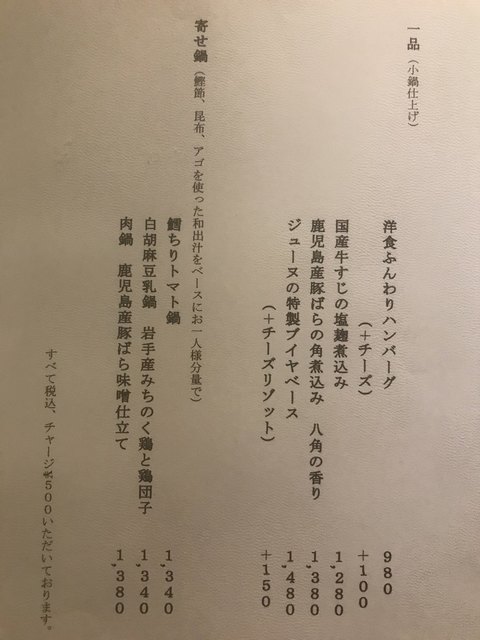 一品（小鍋仕上げ）
洋食ふんわりハンバーグ 980
（＋チーズ） ＋100
国産牛すじの塩麹煮込み 1,280
鹿児島産豚ばらの角煮込み 八角の香り 1,380
ジューヌの特製ブイヤベース 1,480
（＋チーズリゾット） ＋150
寄せ鍋（鰹節、昆布、アゴを使った和出汁をベースにお一人様分量で）
鱈ちりトマト鍋 1,340
白胡麻豆乳鍋 岩手産みちのく鶏と鶏団子 1,340
肉鍋 鹿児島産豚ばら味噌仕立て 1,380
すべて税込、チャージ¥500いただいております。